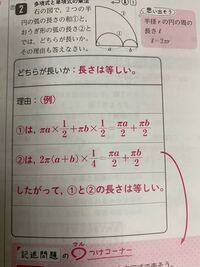 2 多項式と単項式の乗法
右の図で、2つの半
円の弧の長さの和①と、
おうぎ形の弧の長さ②と
では、どちらが長いか。
その理由も答えなさい。
① ②
a b
思い出そう
半径rの円の周
の長さℓ
ℓ=2πr
どちらが長いか:長さは等しい。
理由:(例)
①は、πa×1/2+πb×1/2=πa/2+πb/2
②は、2π(a+b)×1/4=πa/2+πb/2
したがって、①と②の長さは等しい。
記述問題の マル つけコーナー